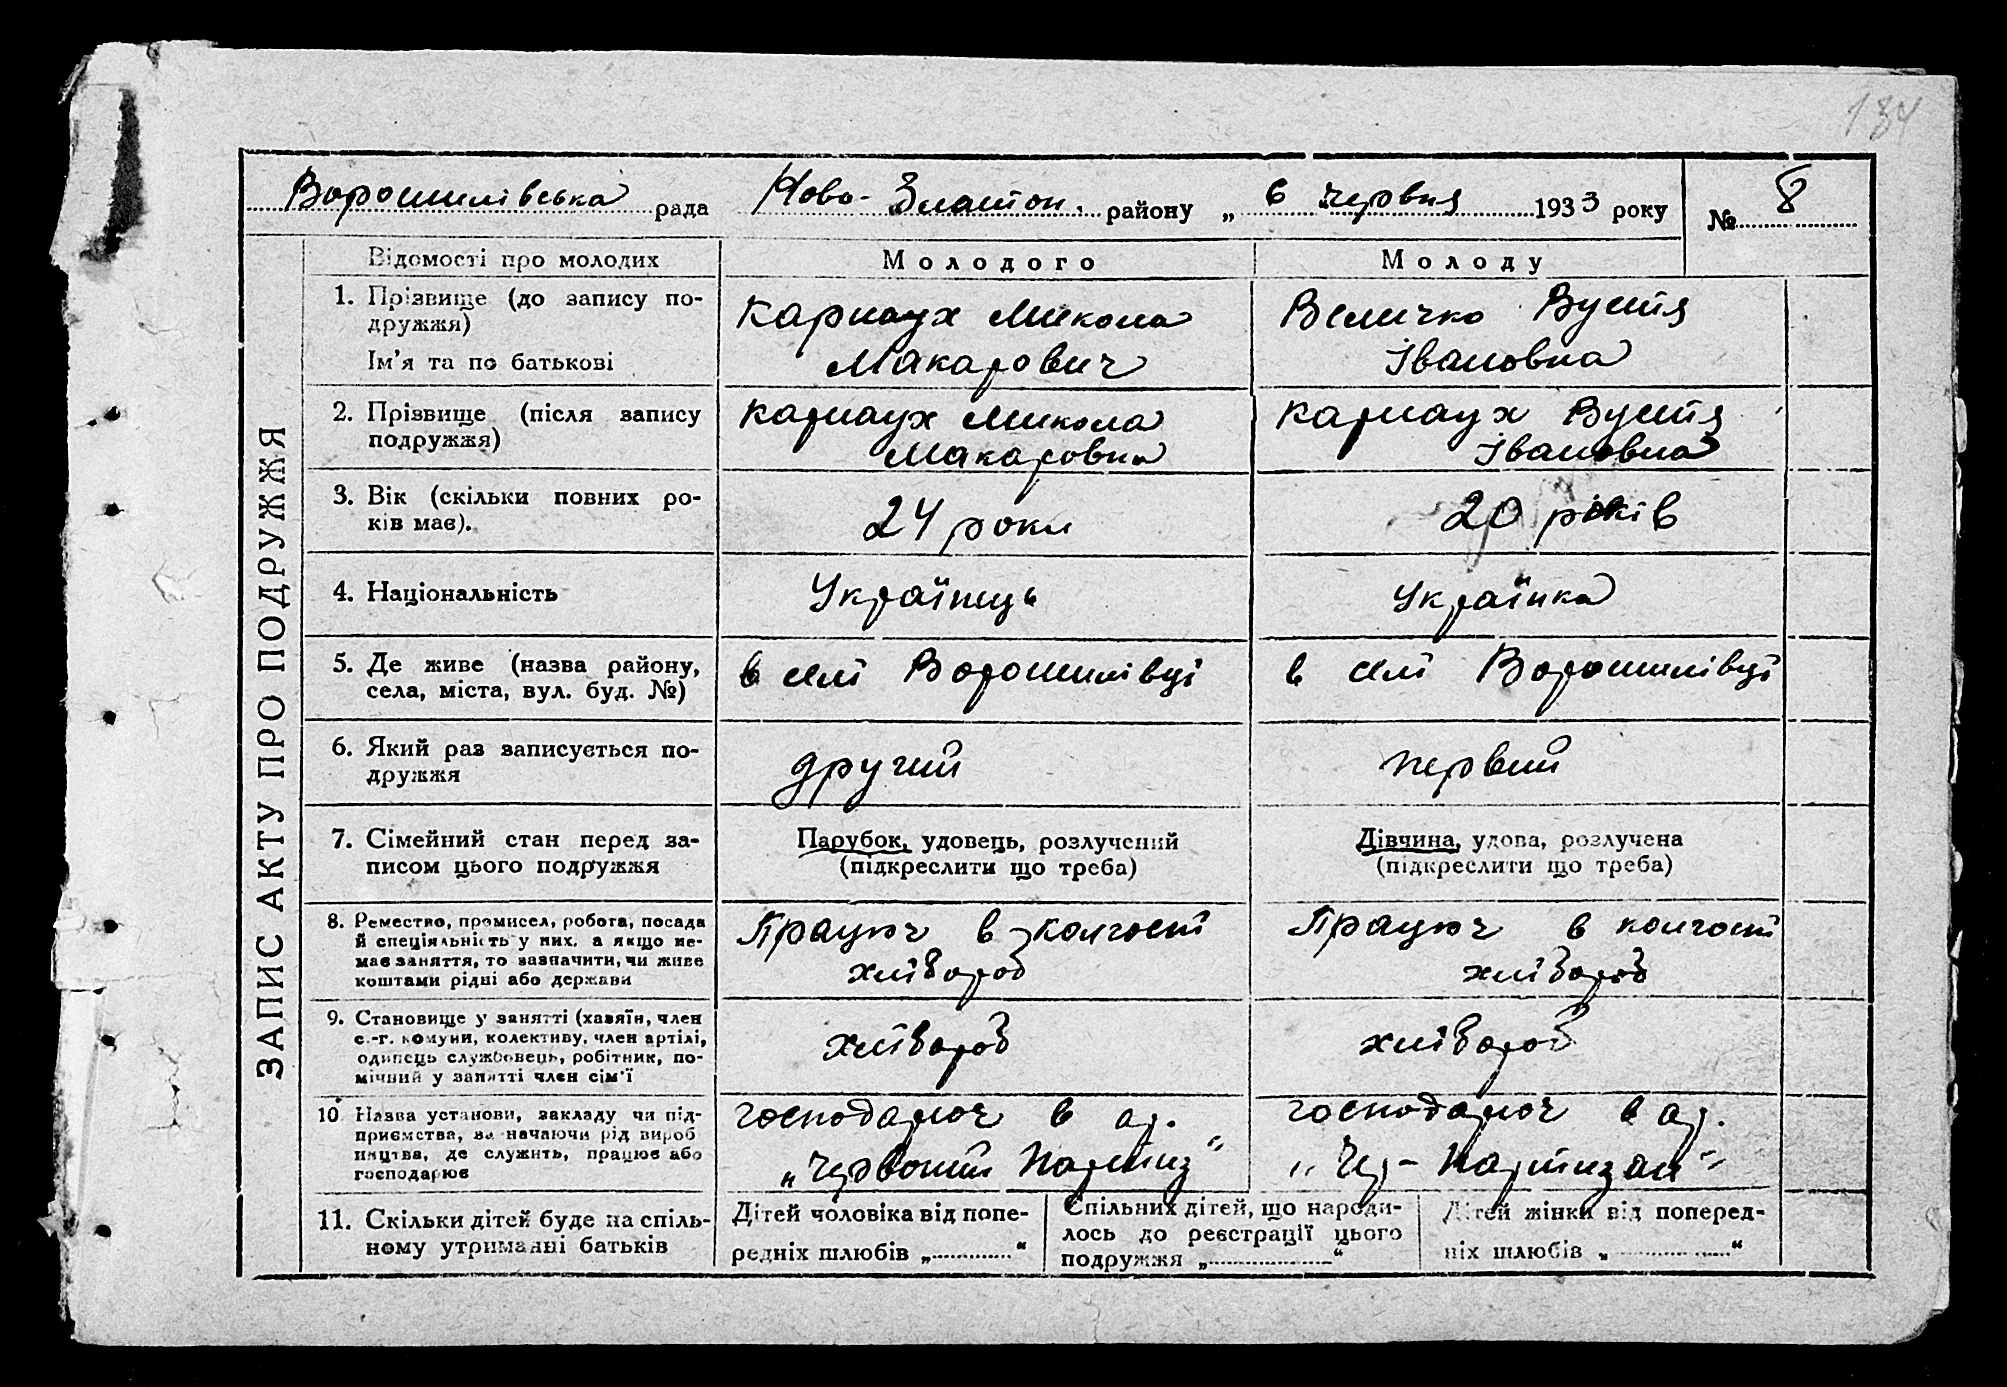 184
Ворошилівська рада Ново-Златоп. району „ 6 червня 1933 року № 8
ЗАПИС АКТУ ПРО ПОДРУЖЖЯ
Відомості про молодих
Молодого
Молоду
1. Прізвище (до запису по-
дружжя)
Ім'я та по батькові
Карнаух Микола
Макарович
Величко Вустя
Івановна
2. Прізвище (після запису
подружжя)
Карнаух Микола
Макарович
Карнаух Вустя
Івановна
3. Вік (скільки повних ро-
ків має).
24 роки
20 років
4. Національність
Українець
Українка
5. Де живе (назва району,
села, міста, вул. буд. №)
в селі Ворошилівці
в селі Ворошилівці
6. Який раз записується по-
дружжя
другий
первий
7. Сімейний стан перед за-
писом цього подружжя
Парубок, удовець, розлучений
(підкреслити що треба)
Дівчина, удова, розлучена
(підкреслити що треба)
8. Ремество, промисел, робота, посада
й спеціяльність у них, а якщо не-
має заняття, то зазначити, чи живе
коштами рідні або держави
Працює в колгоспі
хлібороб
Працює в колгоспі
хлібороб
9. Становище у занятті (хазяїн, член
с.-г. комуни, колективу, член артілі,
одинець службовець, робітник, по-
мічний у занятті член сім'ї
хлібороб
хлібороб
10 Назва установи, закладу чи під-
приємства, зазначаючи рід вироб
ництва, де служить, працює або
господарює
господарює в ар.
„Червоний Партиз"
господарює в ар.
„Чер- Партизан"
11. Скільки дітей буде на спіль-
ному утриманні батьків
Дітей чоловіка від попе-
редніх шлюбів „ “
Спільних дітей, що народи-
лось до реєстрації цього
подружжя „ “
Дітей жінки від поперед-
ніх шлюбів „ “